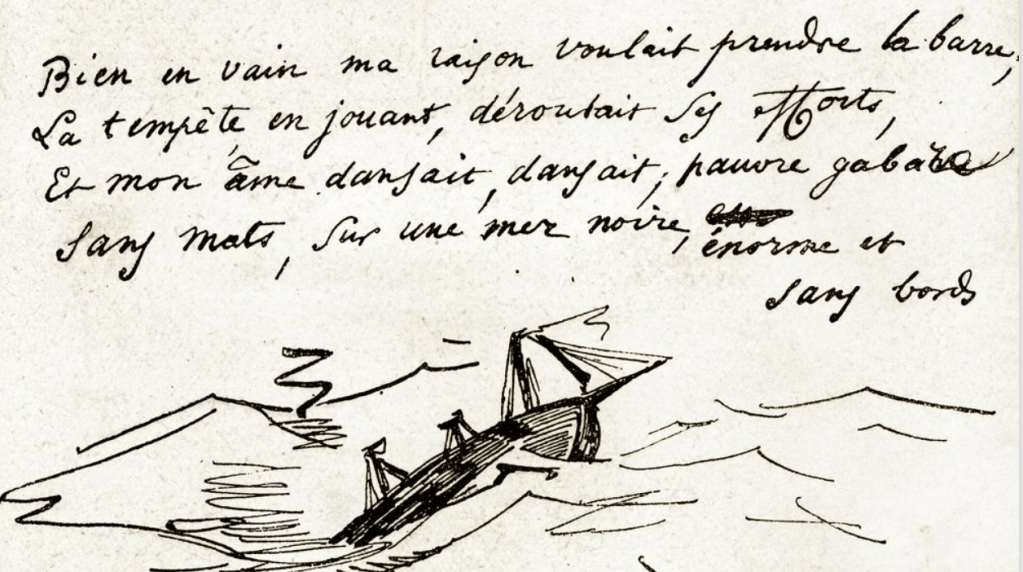 Bien en vain ma raison voulait prendre la barre,
La tempête en jouant, déroutait ses efforts,
Et mon âme dansait, dansait, pauvre gabare
Sans mats, sur une mer noire, énorme et
sans bords